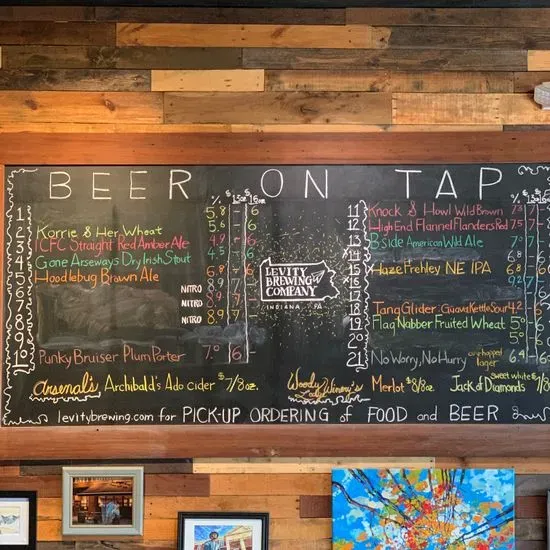 BEER ON TAP
% $13oz $16oz
1 5.8 - 6
2 Korrie & Her Wheat 5.6 - 6
3 ICFC Straight Red Amber Ale 4.9 - 6
4 Gone Arseways Dry Irish Stout 4.5 - 6
5 Hoodlebug Brown Ale 6.8 - 6
6 NITRO 8.9 7
7 NITRO 8.9 7
8 NITRO 8.9 7
9
10 Punky Bruiser Plum Porter 7.0 - 6
LEVITY
BREWING
COMPANY
INDIANA, PA
% $13oz $16oz
11 Knock & Howl Wild Brown
12 High End Flannel Flanders Red 7.5 7 -
13 B side American Wild Ale 7.0 7 -
14
15 Haze Frehley NE IPA 6.8
16
17
18 Tang Glider: Guava Kettle Sour 4.2
19 Flag Nabber Fruited Wheat 5.0
20
21 No Worry, No Hurry dry hopped lager 6.4
Arsenal's Archibald's Ado cider $7/8oz.
Woody Lodge Winery's Merlot $8/8oz Jack of Diamonds sweet white
levitybrewing.com for PICK-UP ORDERING of FOOD and BEER